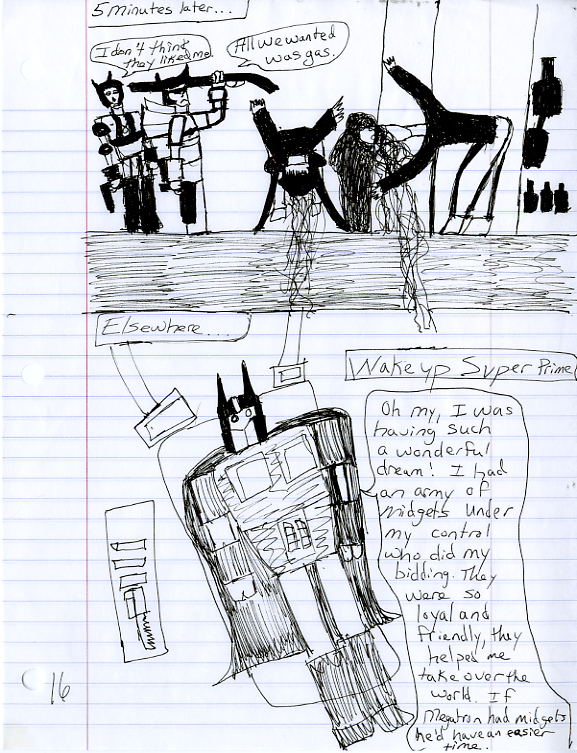 5 minutes later...
I don't think
they liked me.
All we wanted
was gas.
Elsewhere...
Wake up Super Prime
Oh my, I was
having such
a wonderful
dream! I had
an army of
midgets under
my control
who did my
bidding. They
were so
loyal and
friendly, they
helped me
take over the
world. If
Megatron had midgets
he'd have an easier
time.
16